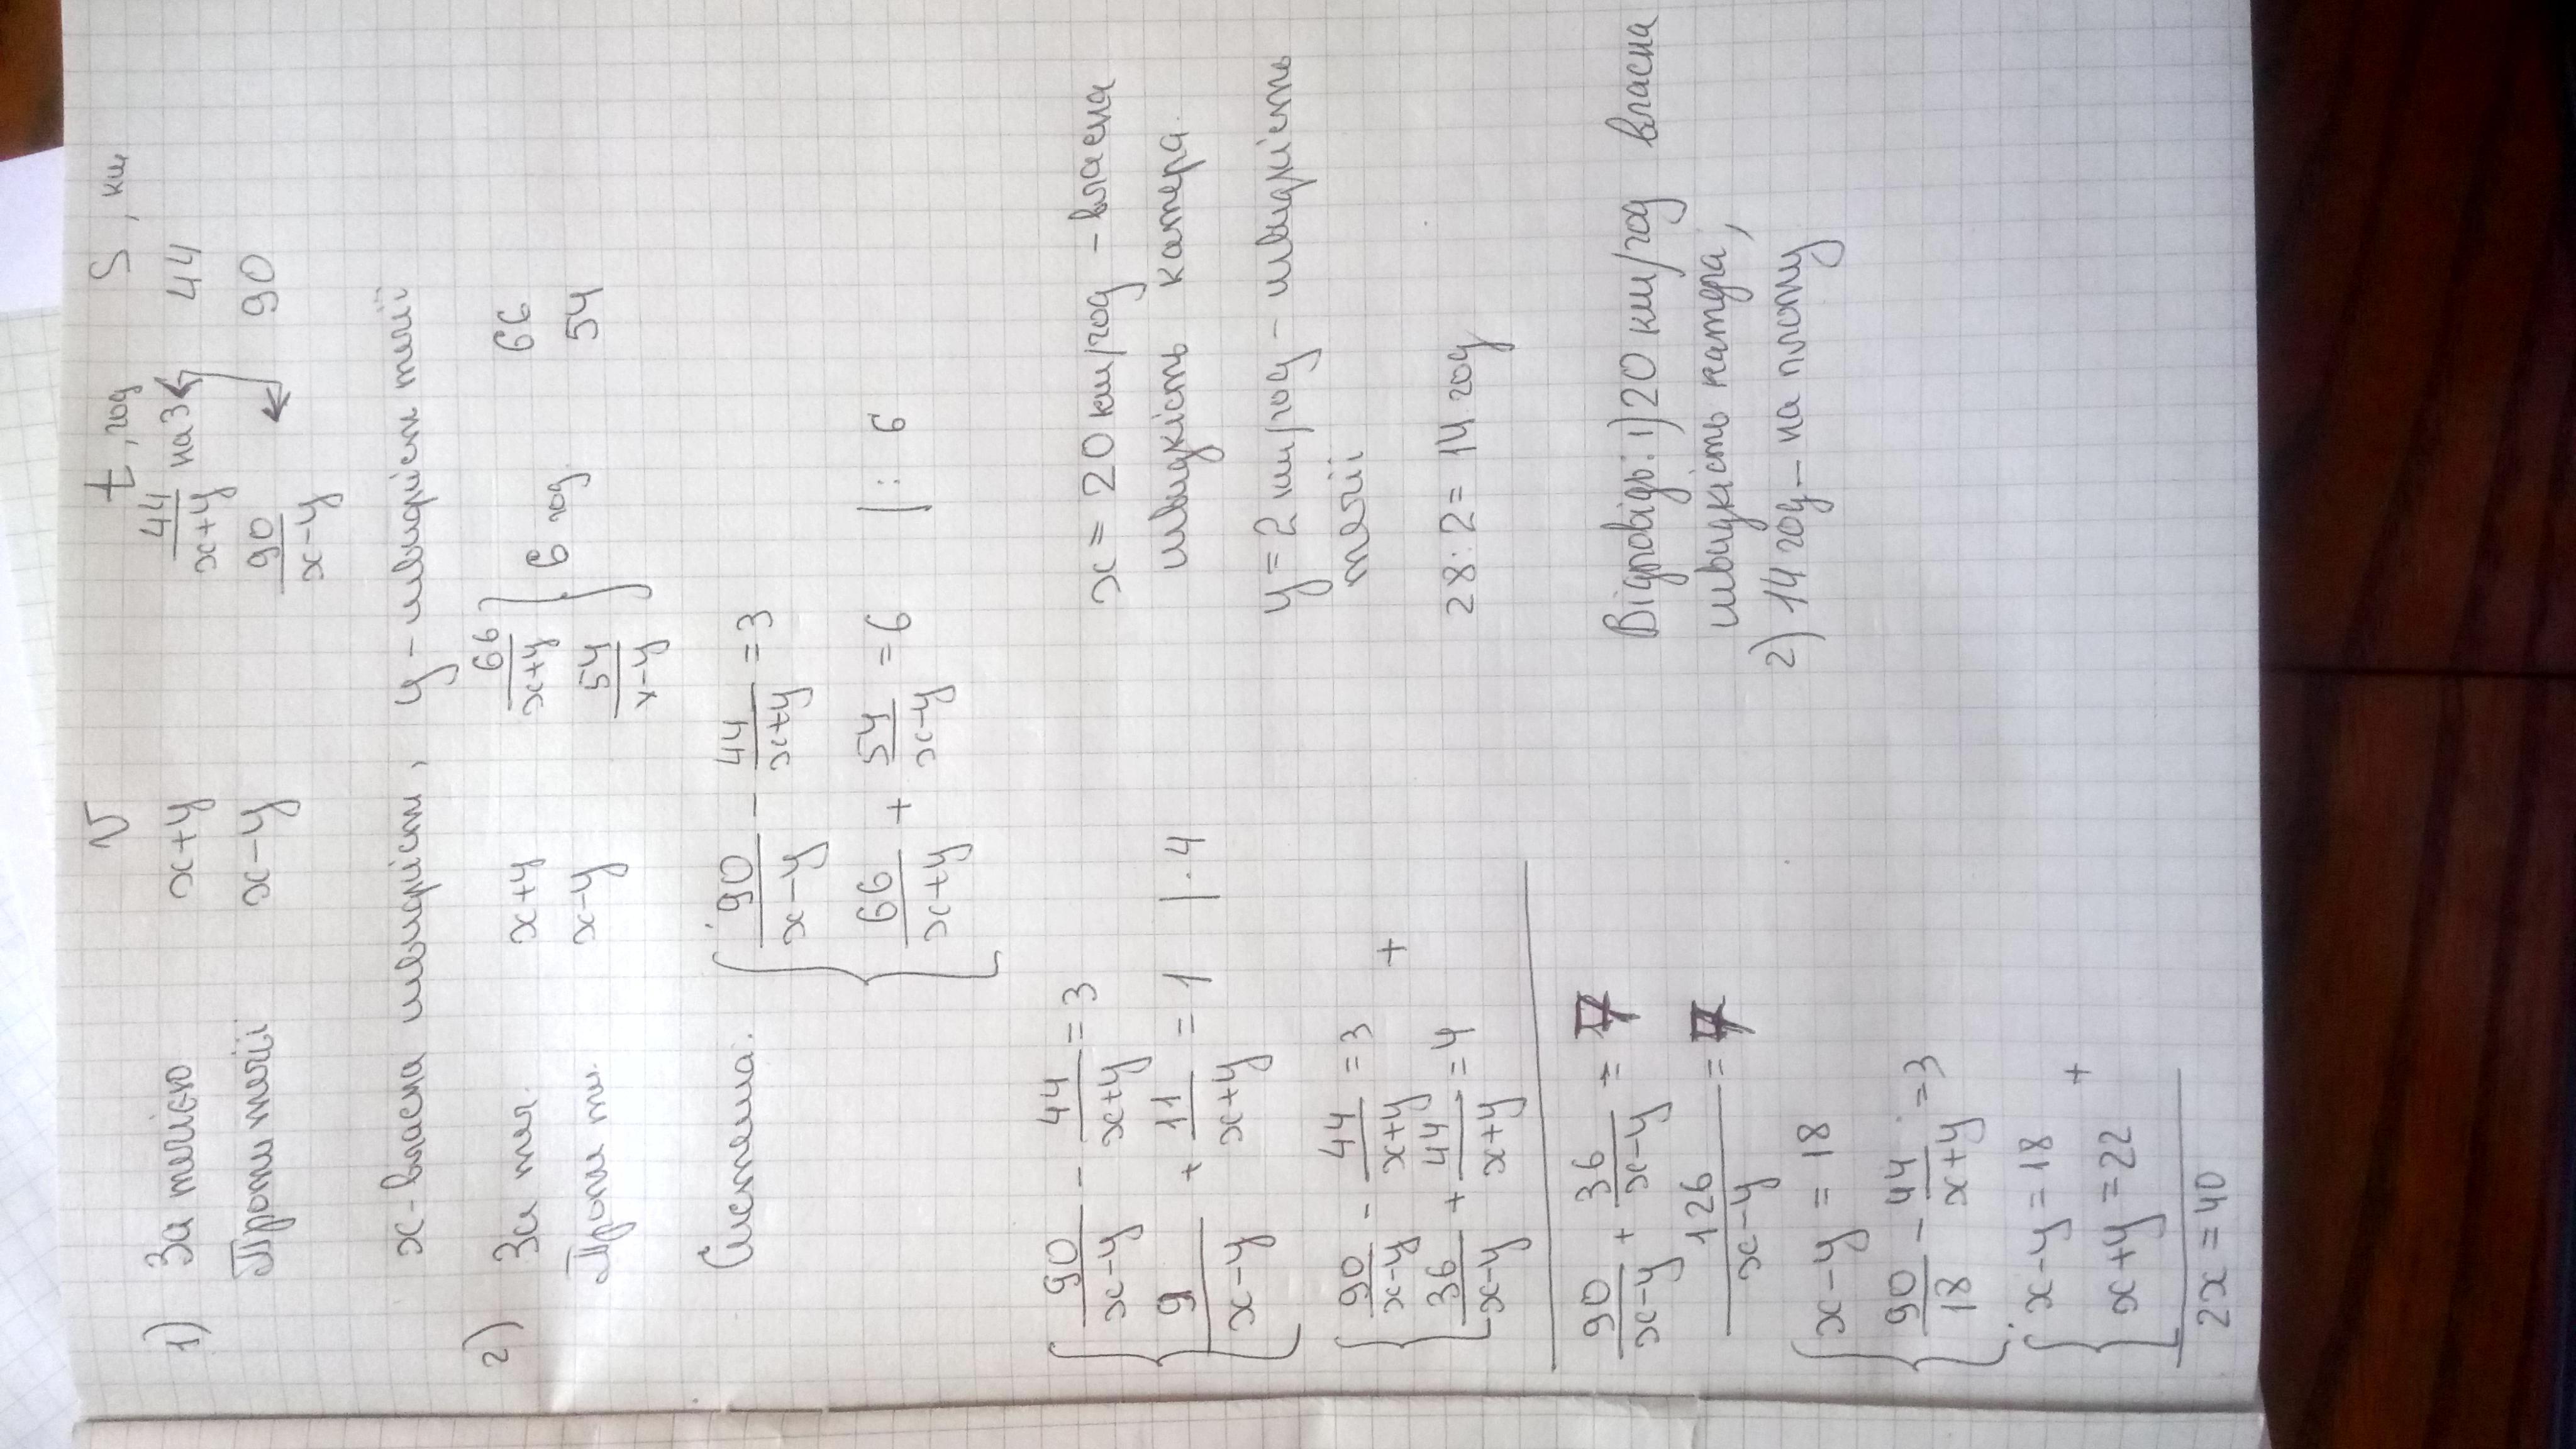 v t, год S, км
1) За течією x+y 44/x+y на 3 44
Проти течії x-y 90/x-y 90
x - власна швидкіст, y - швидкіст течії
2) За теч. x+y 66/x+y } 6 год. 66
Проти т. x-y 54/x-y 54
Система: { 90/x-y - 44/x+y = 3
66/x+y + 54/x-y = 6 |: 6
{ 90/x-y - 44/x+y = 3
9/x-y + 11/x+y = 1 |·4
{ 90/x-y - 44/x+y = 3
36/x-y + 44/x+y = 4 +
90/x-y + 36/x-y = 7
126/x-y = 7
{ x-y = 18
90/18 - 44/x+y = 3
{ x-y = 18
x+y = 22 +
2x = 40
x = 20 км/год - власна
швидкість катера.
y = 2 км/год - швидкість
течії
28:2 = 14 год
Відповідь: 1) 20 км/год власна
швидкість катера,
2) 14 год - на плоту